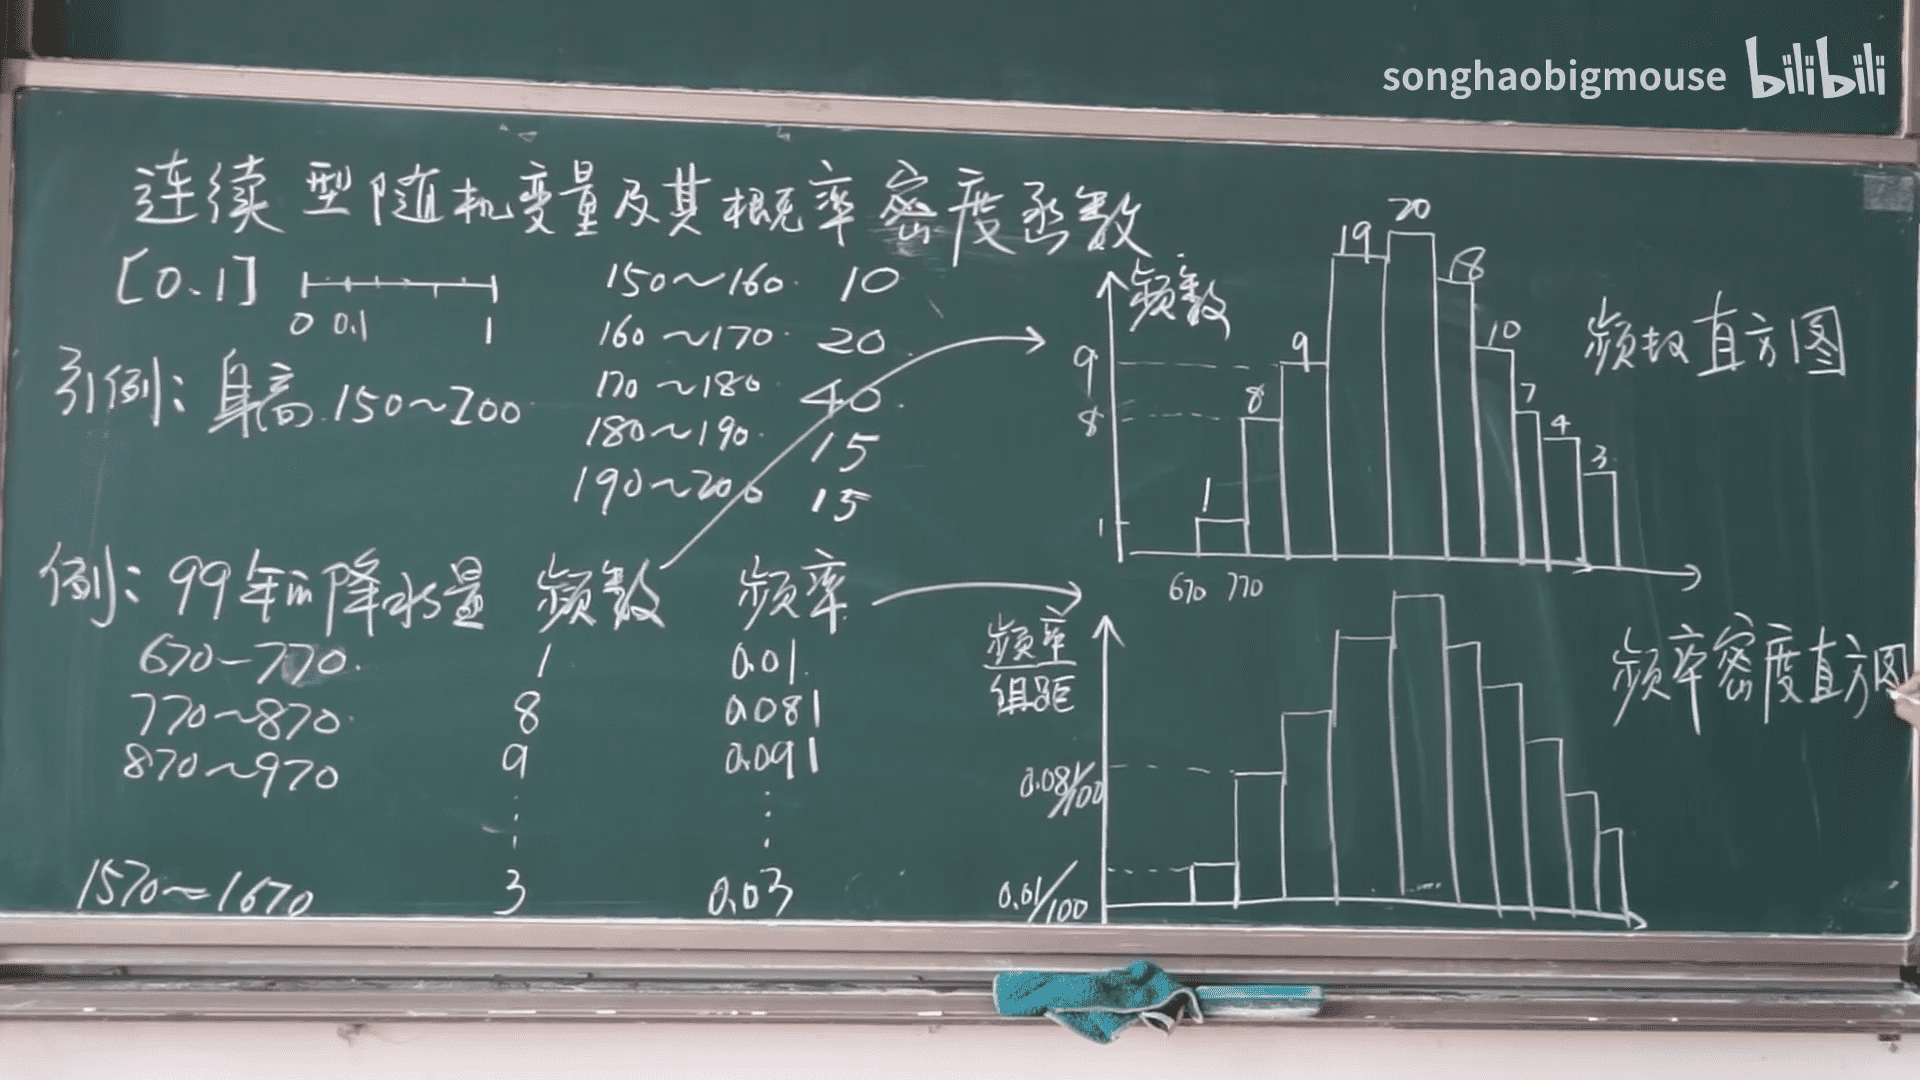 songhaobigmouse bilibili
连续型随机变量及其概率密度函数
[0.1]
0 0.1 1
引例: 身高 150~200
150~160 10
160~170 20
170~180 40
180~190 15
190~200 15
例: 99年的降水量 频数 频率
670-770 1 0.01
770~870 8 0.081
870~970 9 0.091
1570~1670 3 0.03
频数
9
8
1
1 8 9 19 20 18 10 7 4 3
670 770
频数直方图
频率
组距
0.081/100
0.01/100
频率密度直方图